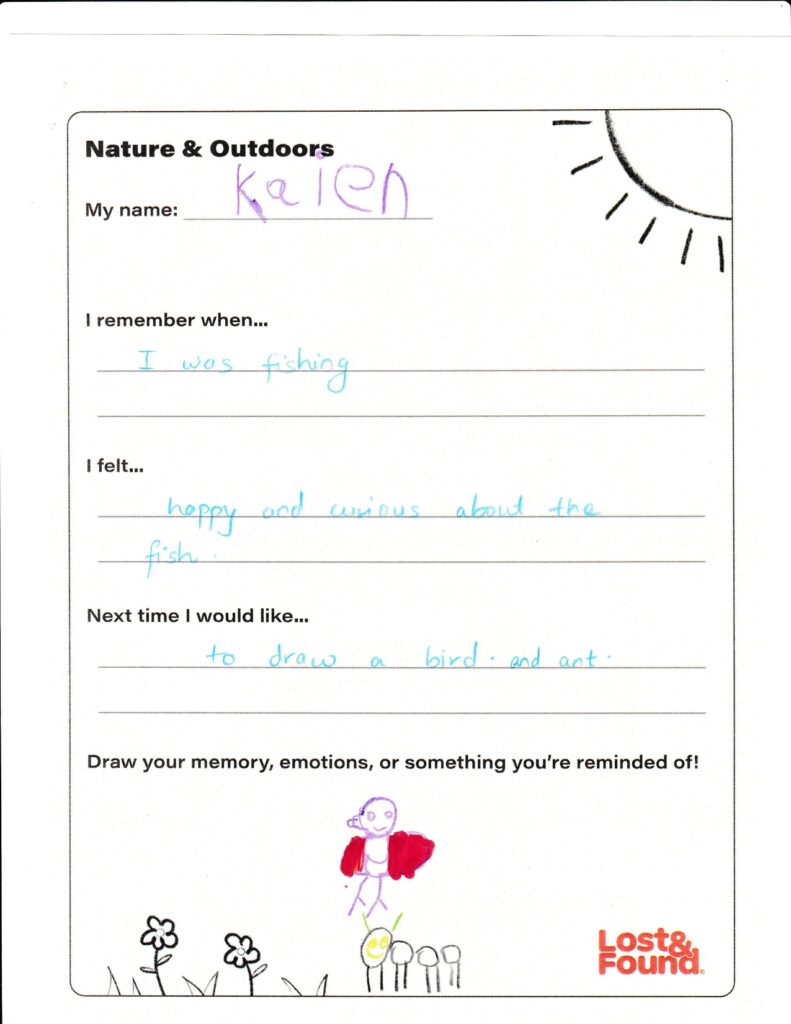 Nature & Outdoors
My name: Kaien
I remember when...
I was fishing
I felt...
happy and curious about the
fish.
Next time I would like...
to draw a bird. and ant.
Draw your memory, emotions, or something you're reminded of!
Lost&
Found.